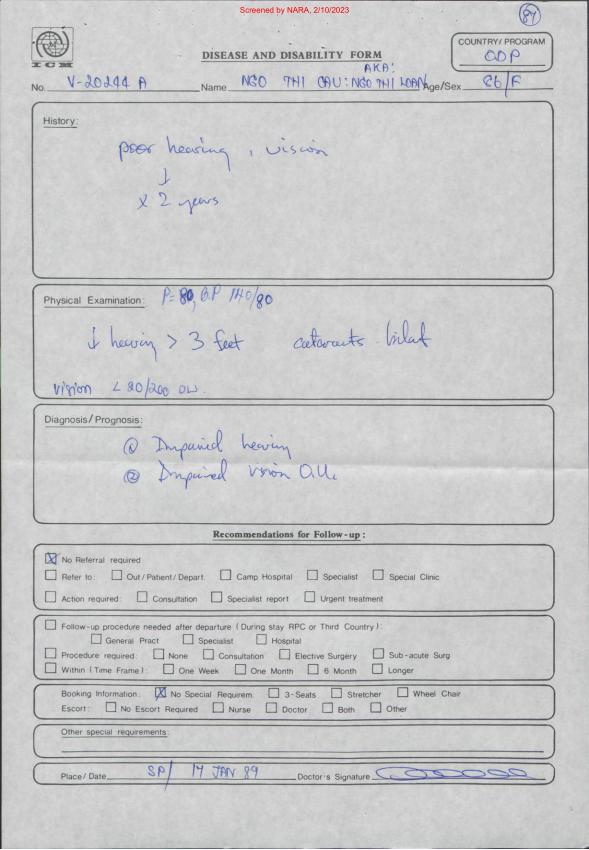 Screened by NARA, 2/10/2023
84
ICM
DISEASE AND DISABILITY FORM
COUNTRY/PROGRAM
ODP
No. V-20244 A Name NGO THI CAU: AKA: NGO THI LOAN Age/Sex 86/F
History:
poor hearing, vision
↓
x 2 years
Physical Examination: P=80, B.P 140/80
↓ hearing > 3 feet cataracts bilat
Vision < 20/200 OU.
Diagnosis/Prognosis:
① Impaired hearing
② Impaired vision O.U.
Recommendations for Follow-up:
☒ No Referral required
☐ Refer to: ☐ Out/Patient/Depart. ☐ Camp Hospital ☐ Specialist ☐ Special Clinic
☐ Action required: ☐ Consultation ☐ Specialist report ☐ Urgent treatment
☐ Follow-up procedure needed after departure (During stay RPC or Third Country):
☐ General Pract ☐ Specialist ☐ Hospital
☐ Procedure required: ☐ None ☐ Consultation ☐ Elective Surgery ☐ Sub-acute Surg
☐ Within (Time Frame): ☐ One Week ☐ One Month ☐ 6 Month ☐ Longer
Booking Information: ☒ No Special Requirem. ☐ 3-Seats ☐ Stretcher ☐ Wheel Chair
Escort: ☐ No Escort Required ☐ Nurse ☐ Doctor ☐ Both ☐ Other
Other special requirements:
Place/Date SP/ 17 JAN 89 Doctor's Signature